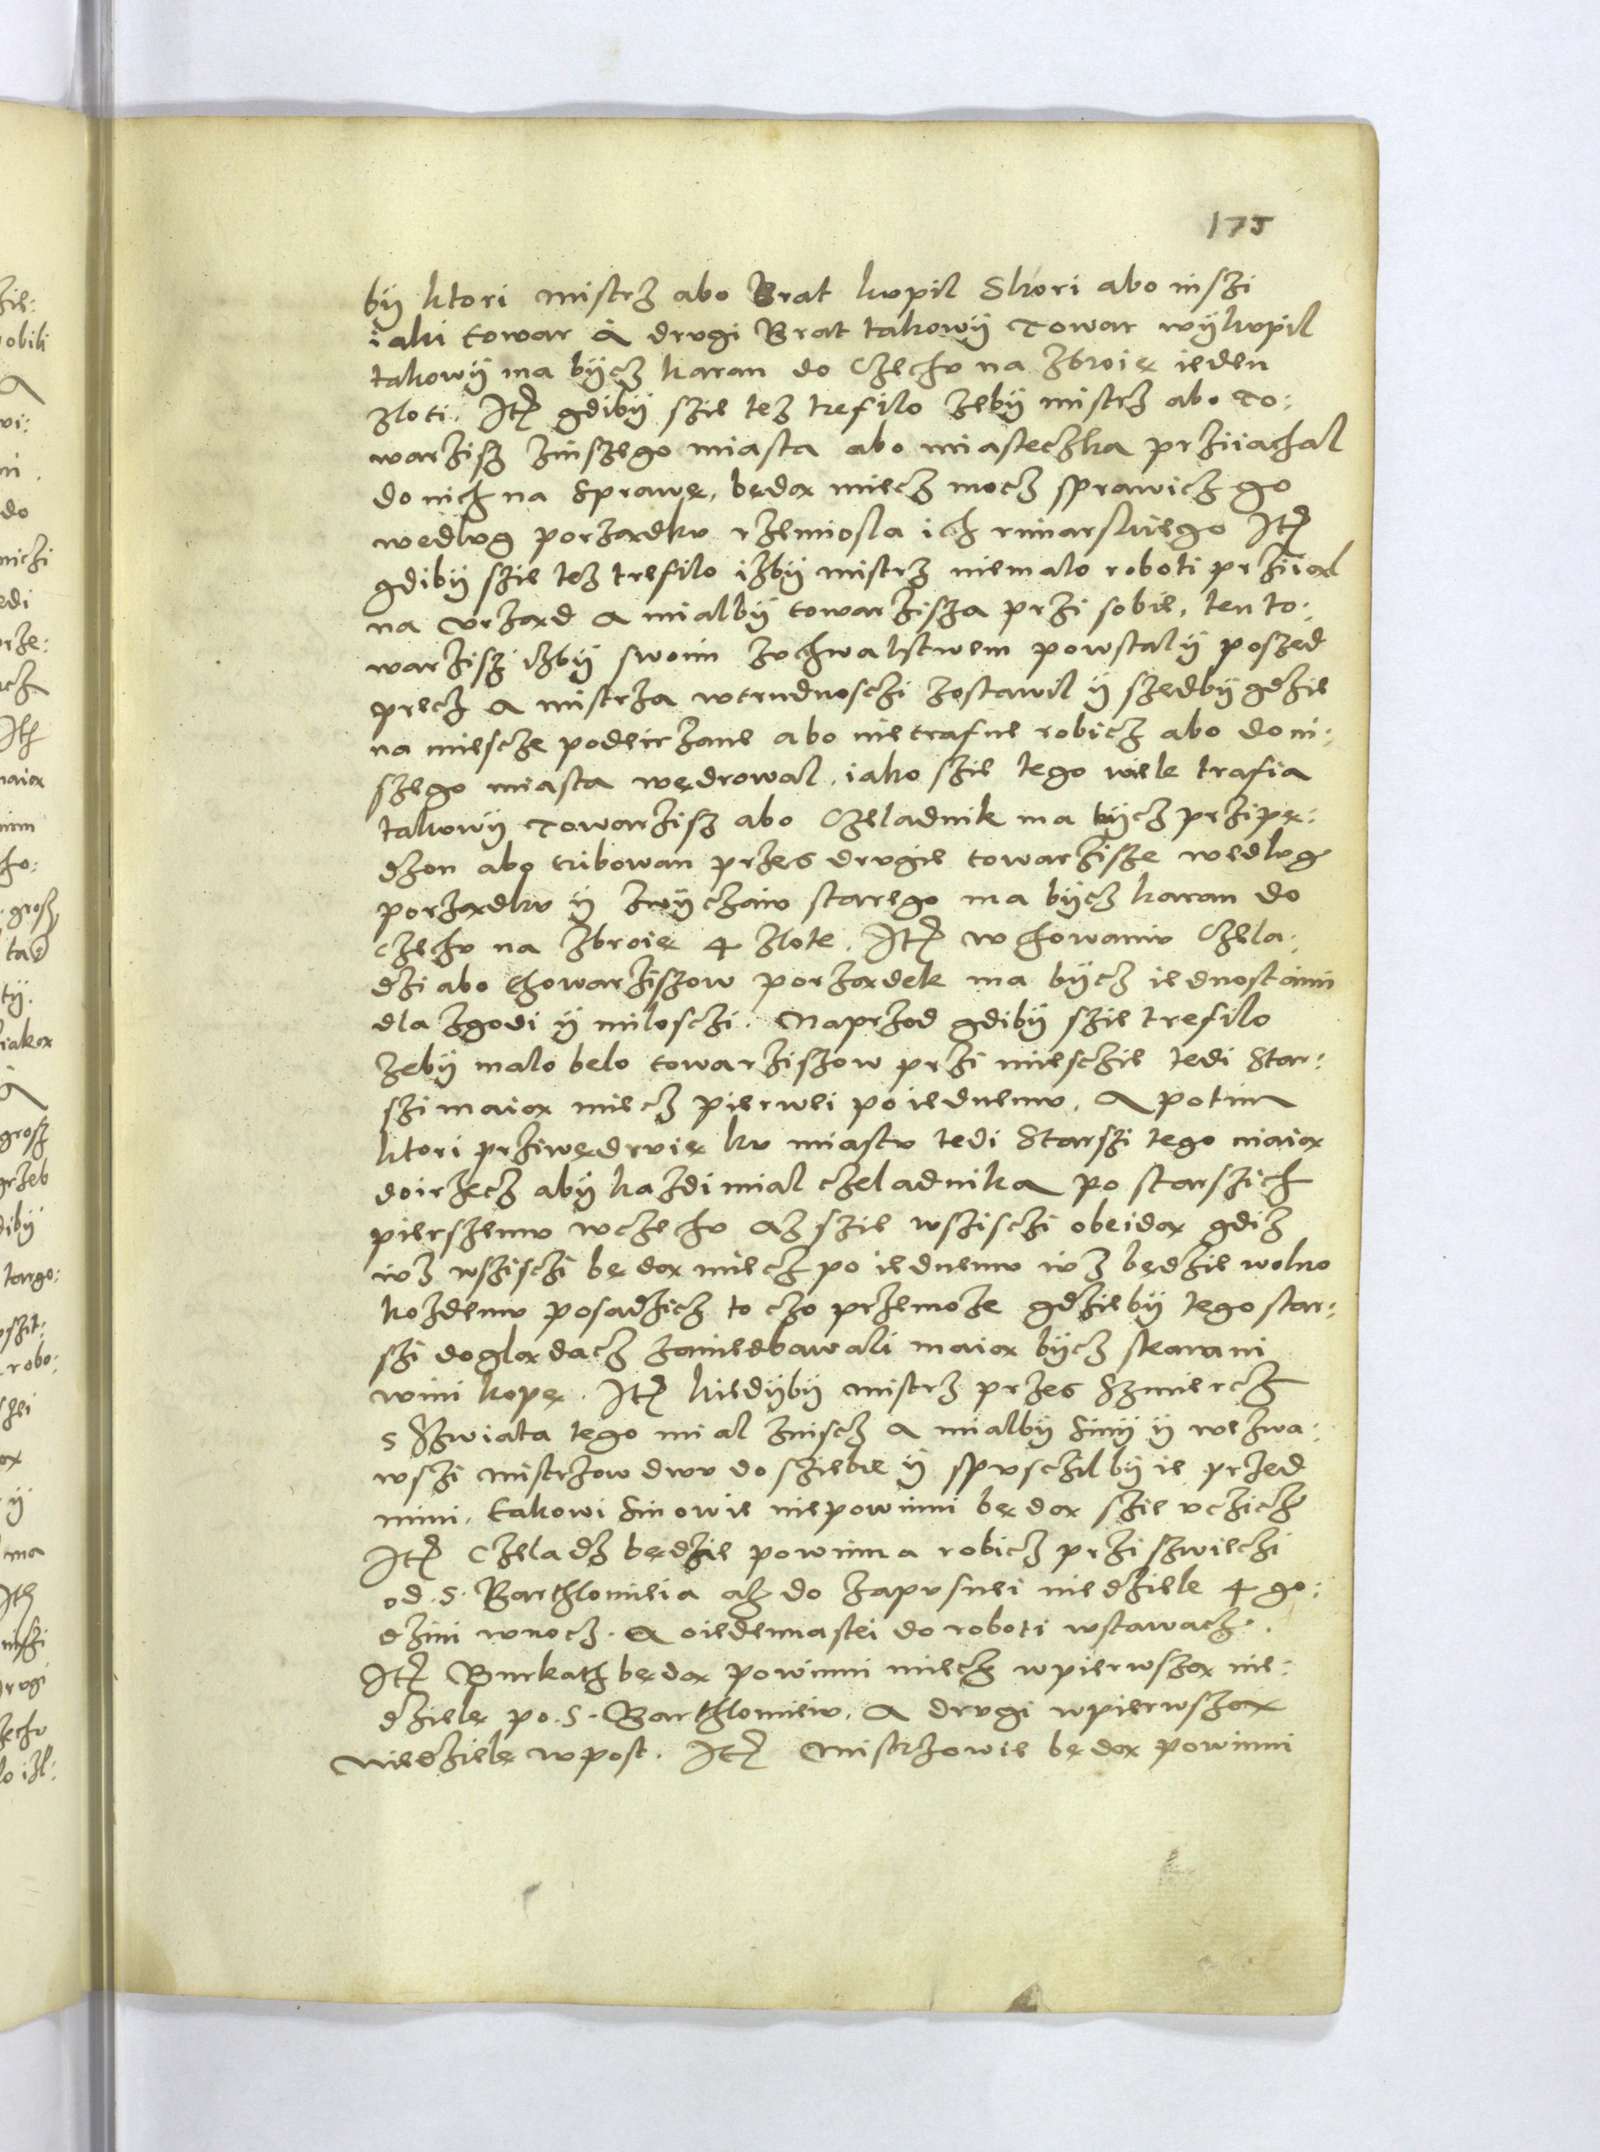 175
bÿ ktori mistrz abo Brat kvpil Skori abo inszi
iaki towar A drvgi Brat takowÿ Towar wÿkvpil
takowÿ ma bÿcz karan do Czechv na Zbroię ieden
Zloti. Itē gdibÿ szie tez trefilo zebÿ mistrz abo To:
warzisz zinszego miasta abo miasteczka prziiachal
do nich na Sprawę, będą miecz mocz sprawicz go
wedlvg porządkv rzemiosla ich rimarskiego Itē
gdibÿ szie tez trefilo izbÿ mistrz niemalo roboti prziiąl
na vrząd a mialbÿ towarzisza przi sobie, ten to:
warzisz izbÿ swoim zvchwalstwem powstalÿ poszed
precz a mistrza wtrudnosczi zostawil ÿ szedbÿ gdzie
na miescze podeirzane abo nietrafne robicz abo do ni:
szego miasta wędrowal, iako szie tego wiele trafia
takowÿ Towarzisz abo Czeladnik ma bÿcz przipę:
dzon abo tribowan przes drvgie towarzisze wedlvg
porządkv ÿ zwÿczaiv starego ma bÿcz karan do
czechv na zbroię 4 zlote. Itē w chowaniv Czela:
dzi abo thowarziszow porządek ma bÿcz iednostaini
dla zgodi ÿ milosczi. Naprzod gdibÿ szie trefilo
zebÿ malo belo towarziszow przi miesczie tedi Star:
szi maią miecz pierwei po iednemv, A potim
ktori prziwędrvię kv miastv tedi Starszi tego maią
doirzecz abÿ kazdi mial czeladnika po starszich
pierszemv wczechv az szie wszisczi obeidą gdiz
ivz wszisczi będą miecz po iednemv ivz będzie wolno
kozdemv posadzicz to czo przemoze gdziebÿ tego star:
szi doglądacz zaniedbawali maią bÿcz skarani
wini kopę. Itē kiedÿbÿ mistrz przes Szmiercz
s Szwiata tego mial zniscz a mialbÿ Sinÿ ÿ wezwa:
wszi mistrzow dwv do sziebie ÿ spvsczilbÿ ie przed
nimi, takowi Sinowie niepowinni będą szie vczicz
Itē Czeladz będzie powinna robicz przi szwieczi
od S. Barthlomieia asz do zapvsnei niedziele 4 go:
dzini wnocz. A oiedennastei do roboti wstawacz.
Itē Burkath będą powinni miecz wpierwszą nie:
dzielę po S. Barthlomieiv, A drvgi wpierwszą
niedzielę wpost. Itē Mistrzowie będą powinni